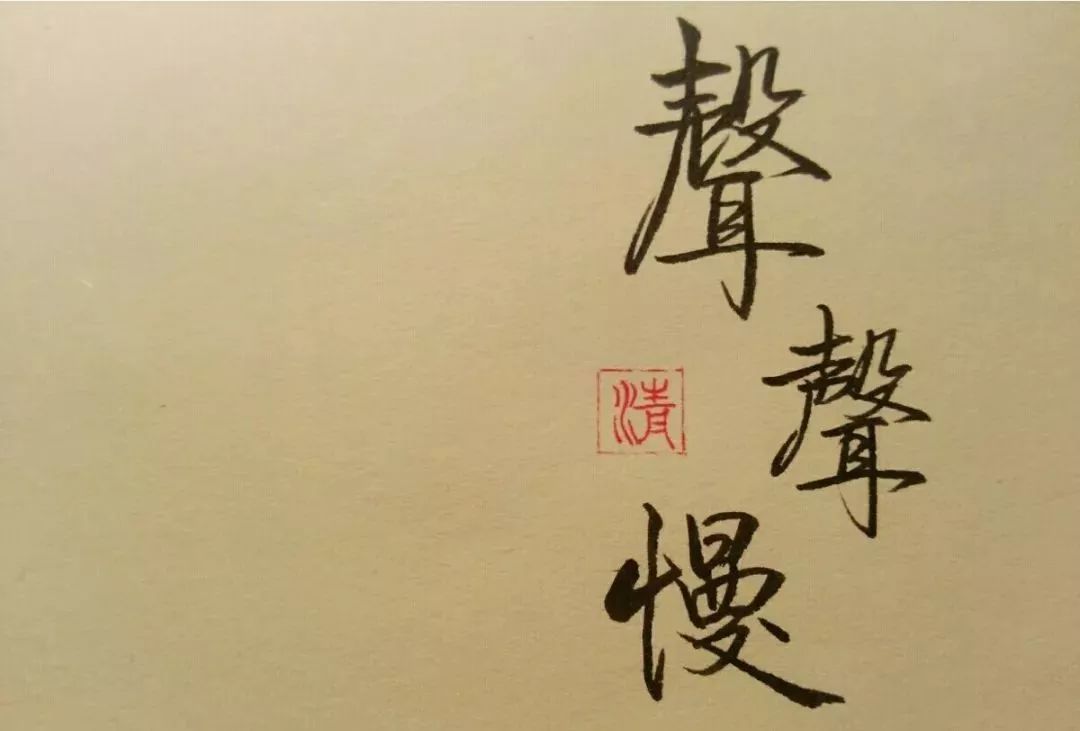 聲聲慢
清